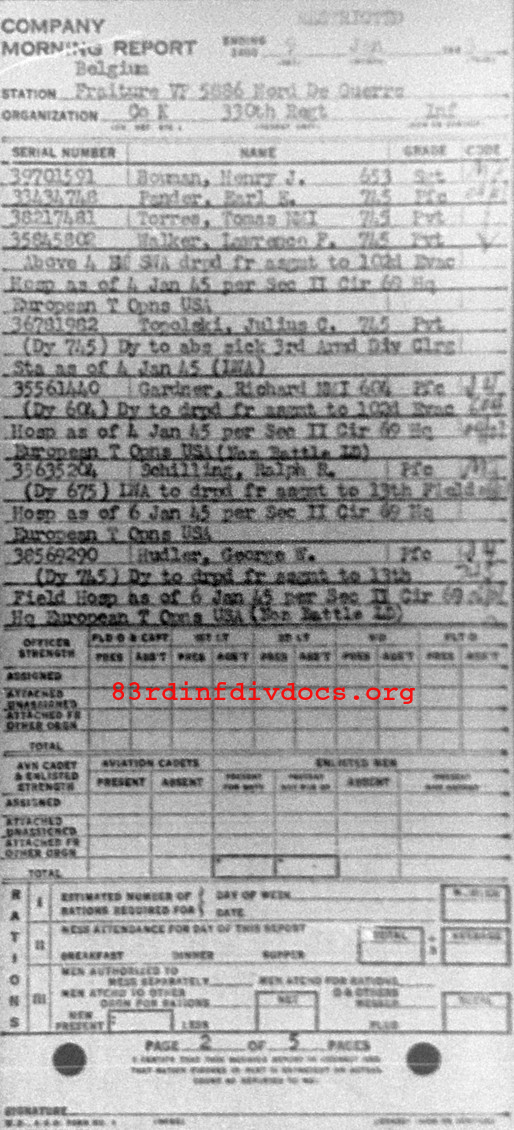 RESTRICTED
COMPANY
MORNING REPORT ENDING 9 Jan 194 5
Belgium
STATION Fraiture VP 5886 Nord De Guerre
ORGANIZATION Co K 330th Regt Inf
SERIAL NUMBER NAME GRADE CODE
39701591 Bowman, Henry J. 653 Sgt
33434748 Pander, Earl E. 745 Pfc
38217481 Torres, Tomas NMI 745 Pvt
35845802 Walker, Lawrence F. 745 Pvt
Above 4 EM SWA drpd fr asgmt to 102d Evac
Hosp as of 4 Jan 45 per Sec II Cir 69 Hq
European T Opns USA
36781982 Topolski, Julius C. 745 Pvt
(Dy 745) Dy to abs sick 3rd Armd Div Clrg
Sta as of 4 Jan 45 (LWA)
35561440 Gardner, Richard NMI 604 Pfc
(Dy 604) Dy to drpd fr asgmt to 102d Evac
Hosp as of 4 Jan 45 per Sec II Cir 69 Hq
European T Opns USA (Non Battle LD)
35635204 Schilling, Ralph R. Pfc
(Dy 675) LWA to drpd fr asgmt to 13th Field
Hosp as of 6 Jan 45 per Sec II Cir 69 Hq
European T Opns USA
38569290 Hudler, George W. Pfc
(Dy 745) Dy to drpd fr asgmt to 13th
Field Hosp as of 6 Jan 45 per Sec II Cir 69
Hq European T Opns USA (Non Battle LD)
OFFICER STRENGTH FLD O & CAPT 1ST LT 2D LT WO FLT O
PRES ABS'T PRES ABS'T PRES ABS'T PRES ABS'T PRES ABS'T
ASSIGNED
ATTACHED UNASSIGNED
83rdinfdivdocs.org
ATTACHED FR OTHER ORGN
TOTAL
AVN CADET & ENLISTED STRENGTH AVIATION CADETS ENLISTED MEN
PRESENT ABSENT PRESENT FOR DUTY PRESENT NOT FOR DY ABSENT PRESENT
ASSIGNED
ATTACHED UNASSIGNED
ATTACHED FR OTHER ORGN
TOTAL
RATIONS
I ESTIMATED NUMBER OF RATIONS REQUIRED FOR DAY OF WEEK NUMBER
DATE
II MESS ATTENDANCE FOR DAY OF THIS REPORT TOTAL ÷ 3 AVERAGE
BREAKFAST DINNER SUPPER
III MEN AUTHORIZED TO MESS SEPARATELY MEN ATCHD FOR RATIONS
MEN ATCHD TO OTHER ORGN FOR RATIONS NET O & OTHERS TOTAL
MEN PRESENT LESS PLUS
PAGE 2 OF 5 PAGES
I CERTIFY THAT THIS MORNING REPORT IS CORRECT AND
SIGNATURE
W.D., A.G.O. FORM NO. 1